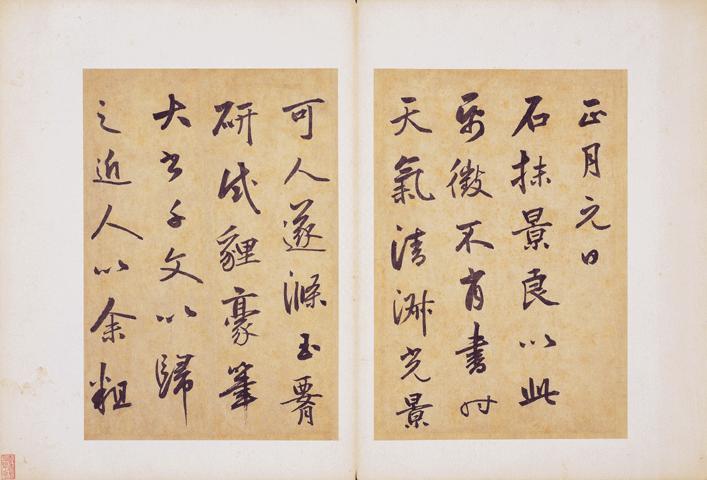 正月元日
石抹景良以此
帋徵不肖書时
天氣清淑光景
可人遂滌玉
研试貍豪筆
大书千文以歸
之近人以余粗